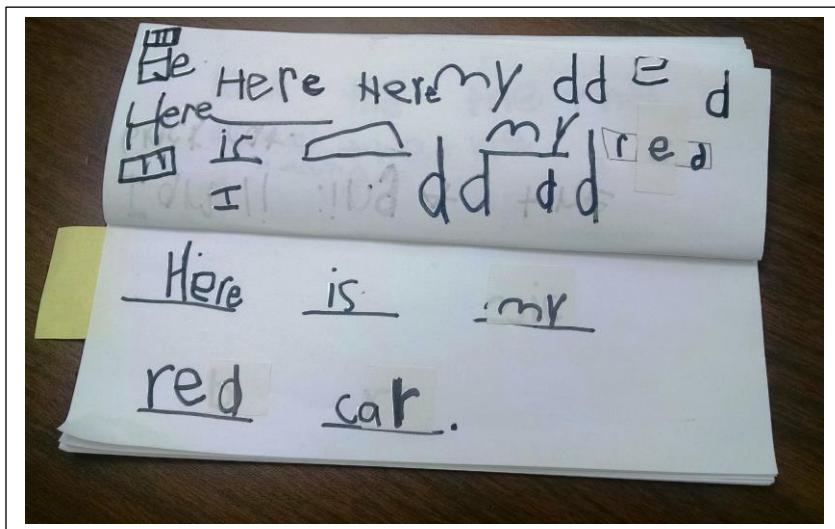 He Here Here my dd = d
Here is my red
I dd dd
Here is my
red car.